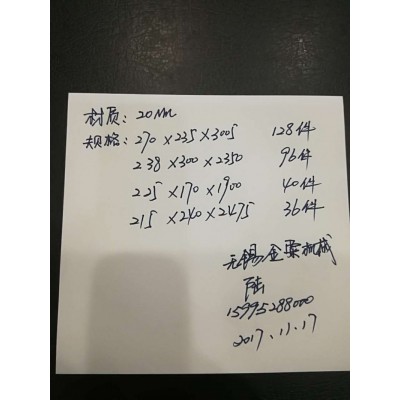 材质：20Mn
规格：270×235×3005 128件
238×300×2350 96件
225×170×1900 40件
215×240×2475 36件
无锡金栗机械
陆
15995288000
2017.11.17